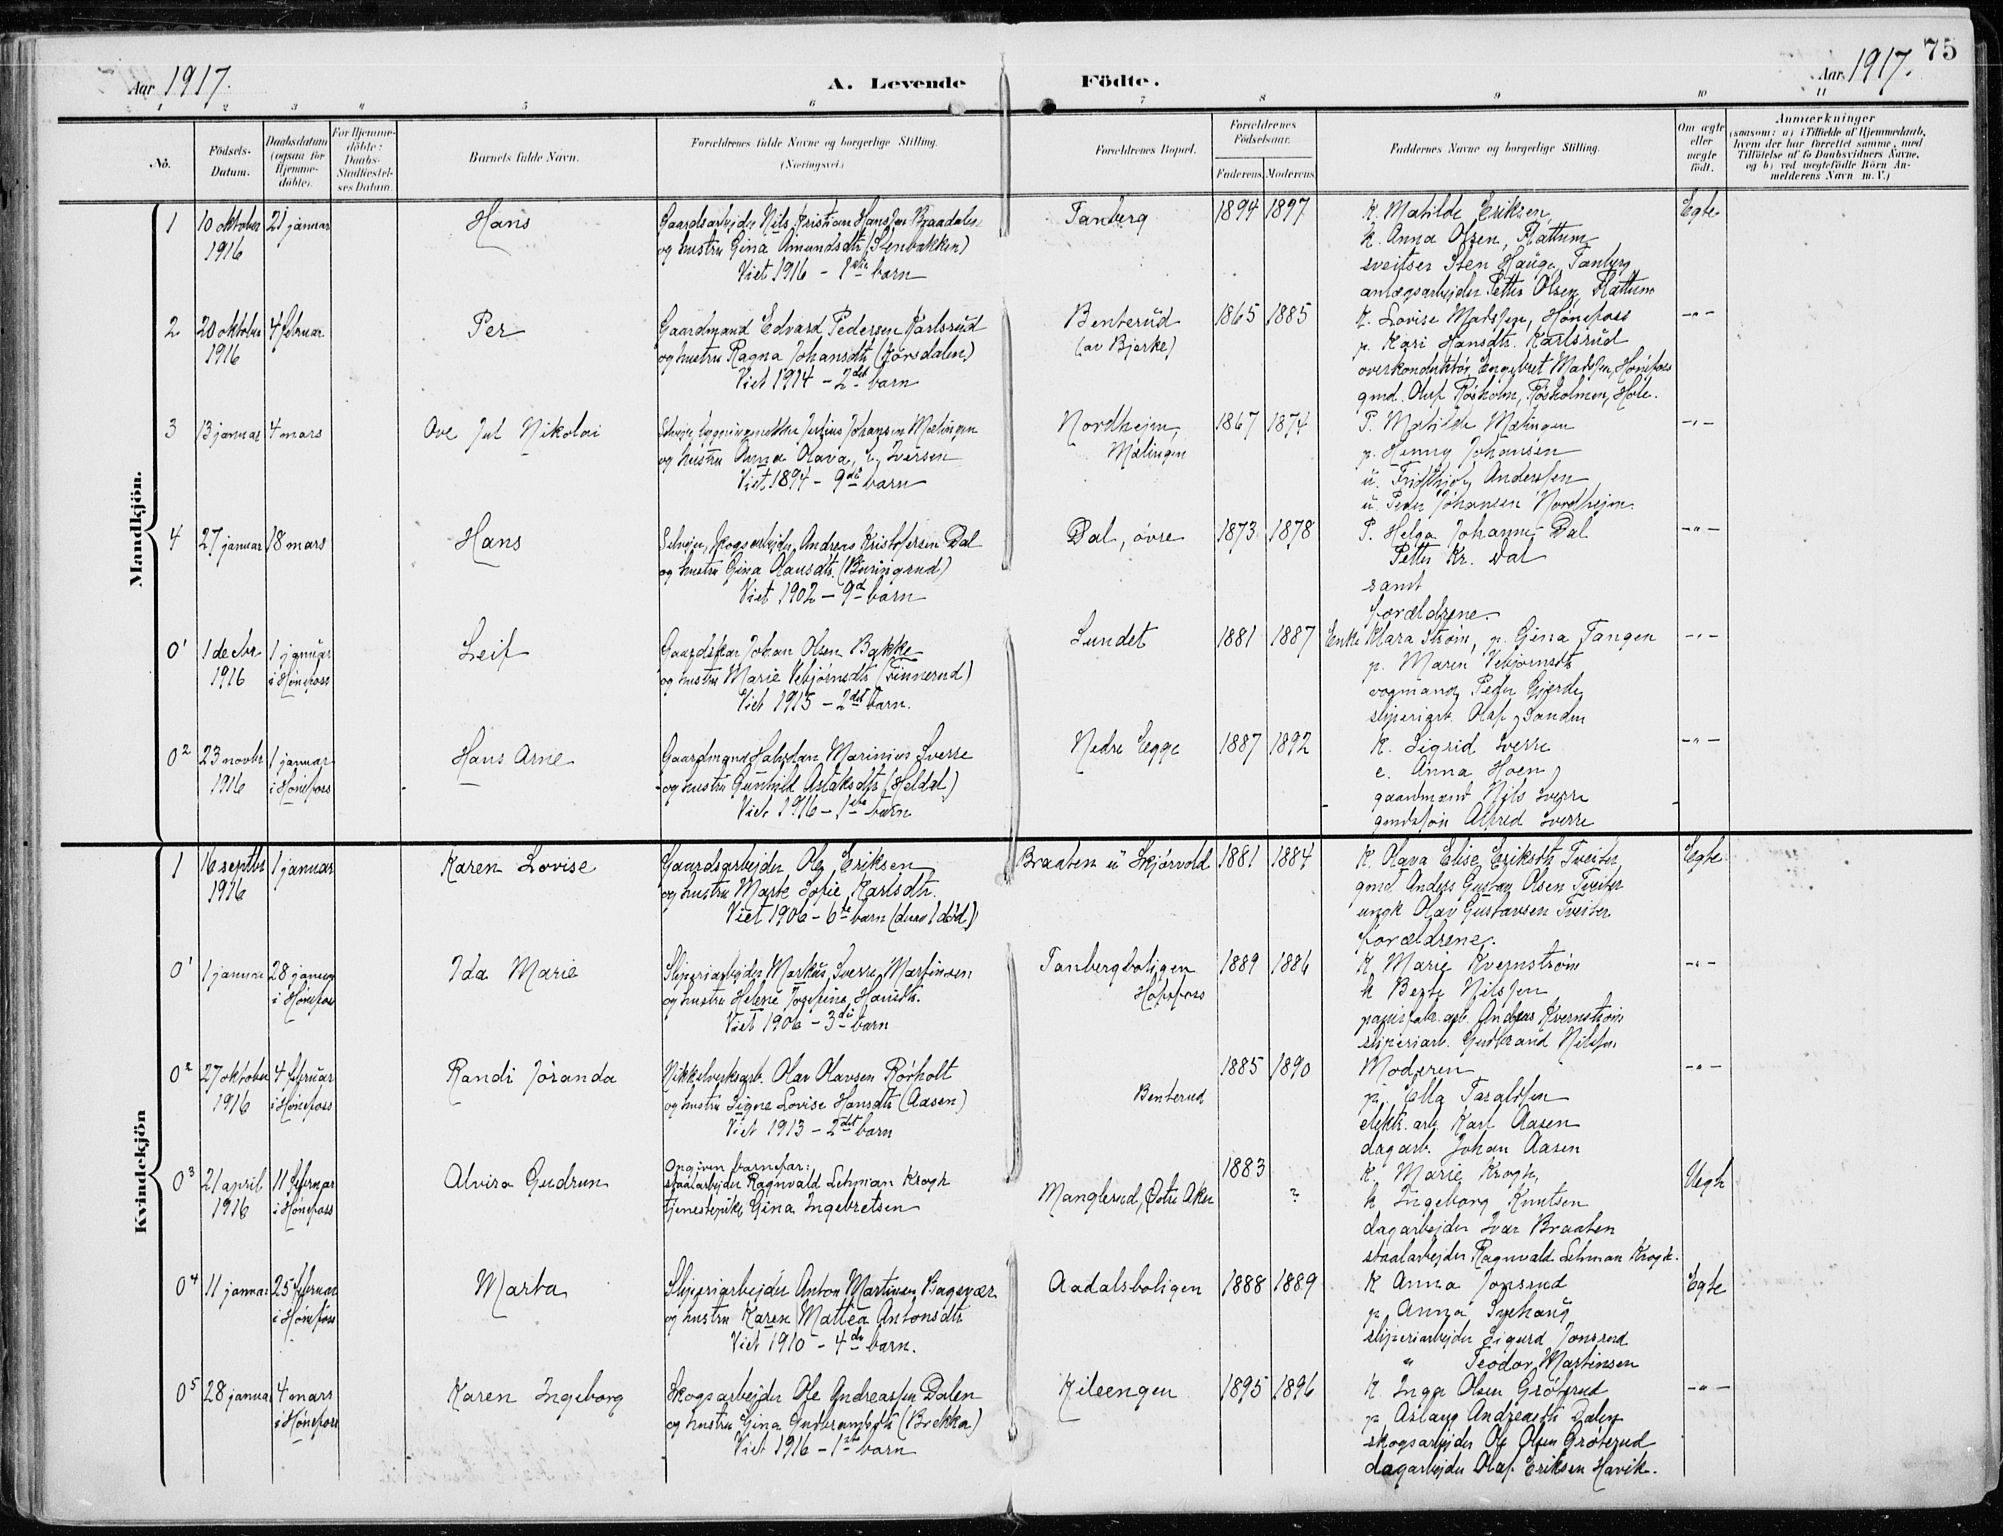 75
Aar 1917.
A. Levende Födte.
Aar 1917.
1 2 3 " 5 6 7 8 9 10 11
No.
Födsels-Datum.
Daabsdatum (ogsaa for Hjemme-döbte).
For Hjemme-döbte: Daabs-Stadfæstel-ses Datum.
Barnets fulde Navn.
Forældrenes fulde Navne og borgerlige Stilling.
(Næringsvei.)
Forældrenes Bopæl.
Forældrenes Födselsaar.
Faderens. Moderens.
Faddernes Navne og borgerlige Stilling.
Om ægte eller uægte født.
Anmærkninger
(saasom: a) i Tilfælde af Hjemmedaab,
hvem der har forrettet samme, med
Tilføielse af to Daabsvidners Navne,
og b) ved uægtefödte Börn An-
melderens Navn m. V.)
Mandkjön.
1 10 oktober 21 januar Hans Gaardsarbeider Nils Kristian Hanssen Braadalen Tanberg 1894 1897 K. Matilde Eriksen, Egte
1916 og hustru Gina Amundsdtr (Stenbakken) k. Anna Olsen, Flattum
Viet 1916 – 1ste barn sveitser Sten Hauge, Tanberg
anlægsarbeider Petter Olsen, Flattum
2 20 oktober 4 februar Per Gaardmand Edvard Pedersen Karlsrud Benterud 1865 1885 K. Lovise Madssen, Hønefoss –"–
1916 og hustru Ragna Johansdtr (Kørsdalen) (av Bjerke) p. Kari Hansdtr. Karlsrud
Viet 1914 – 2det barn overkonduktør Engebret Madssen, Hønefoss
gmd. Oluf Røsholm, Røsholmen, Hole.
3 13 januar 4 mars Ove Jul Nikolai Julius Johansen Mælingen Nordheim, 1867 1874 P. Matilde Mælingen –"–
og hustru Anna Olava, Iversen Mælingen p. Henny Johansen
Viet 1894 – 9de barn u. Fridthjof Anderssen
u. Peder Johansen Nordheim
4 27 januar 18 mars Hans Selveier, skogsarbeider Andreas Kristofersen Dal Dal, øvre 1873 1878 P. Helga Johanne Dal –"–
og hustru Gina Olausdtr. (Buringrud) Petter Kr. Dal
Viet 1902 – 9d barn samt
forældrene.
0¹ 1 decbr 1 januar Leif Gaardskar Johan Olsen Bakke Lundet 1881 1887 Enke Klara Strøm, p. Gina Tangen –"–
1916 i Hønefoss og hustru Marie Vebjørnsdtr (Finnerud) p. Maren Vebjørnsdtr
Viet 1915 – 2det barn. vogmand Peder Gjerde
sliperiarb. Olaf Sanden
0² 23 novbr 1 januar Hans Arne Gaardmand Halvdan Marinius Sverre Nedre Egge 1887 1892 K. Sigrid Sverre –"–
1916 i Hønefoss og hustru Gunhild Aslaksdtr (Heldal) e. Anna Hoen
Viet 1916 – 1ste barn gaardmand Nils Sverre
gmdssøn Alfred Sverre
Kvindekjön
1 16 septbr 1 januar Karen Lovise Gaardsarbeider Ole Eriksen Braaten u Skjørvold 1881 1884 K. Olava Elise Eriksdtr Tveiter Egte
1916 og hustru Marte Sofie Karlsdtr. gmd Anders Gustav Olsen Tveiter
Viet 1906 – 6te barn (derav 1 død) ungk Olav Gustavsen Tveiter
forældrene.
0¹ 1 januar 28 januar Ida Marie Sliperiarbeider Markus Sverre Martinsen Tanbergboligen 1889 1886 K Marie Kvernstrøm –"–
i Hønefoss og hustru Helene Josefine Hansdtr. Hofsfoss k Berte Nilssen
Viet 1906 – 3di barn papirfabr. arb. Andreas Kvernstrøm
sliperiarb. Gudbrand Nilssen
0² 27 oktober 4 februar Randi Jøranda Nikkelverksarb. Olav Olavsen Rørholt Benterud 1885 1890 Moderen –"–
1916 i Hønefoss og hustru Signe Lovise Hansdtr (Aasen) p. Ella Taraldssen
Viet 1913 – 2det barn elektr. arb. Karl Aasen
dagarb. Johan Aasen
0³ 21 april 11 februar Alvira Gudrun Opgiven barnefar: 1883 K. Marie Krogh, Uegte
1916 i Hønefoss staalarbeider Ragnvald Lehman Krogh Manglerud, Østre Aker ? k Ingeborg Knutsen
tjenestepike Gina Ingebretsen dagarbeider Ivar Braaten
staalarbeider Ragnvald Lehman Krogh.
0⁴ 11 januar 25 februar Marta Sliperiarbeider Anton Martinsen Bagsvær Aadalsboligen 1888 1889 K Anna Jonsrud Egte
i Hønefoss og hustru Karen Mattea Antonsdtr p. Anna
Viet 1910 – 4de barn. sliperiarbeider Sigurd Jonsrud
" Teodor Martinsen
0⁵ 28 januar 4 mars Karen Ingeborg Skogsarbeider Ole Andreassen Dalen Kileengen 1895 1896 K. Inga Olsen Grøterud –"–
i Hønefoss og hustru Gina Gulbrandsdtr (Brekka) p Aslaug Andreasdtr Dalen
Viet 1916 – 1ste barn skogsarbeider Ole Olsen Grøterud
dagarbeider Olaf Eriksen Havik.